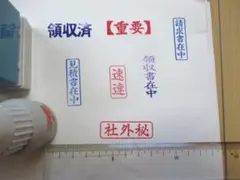 領収済
【重要】
請求書在中
見積書在中
速達
領収書在中
社外秘